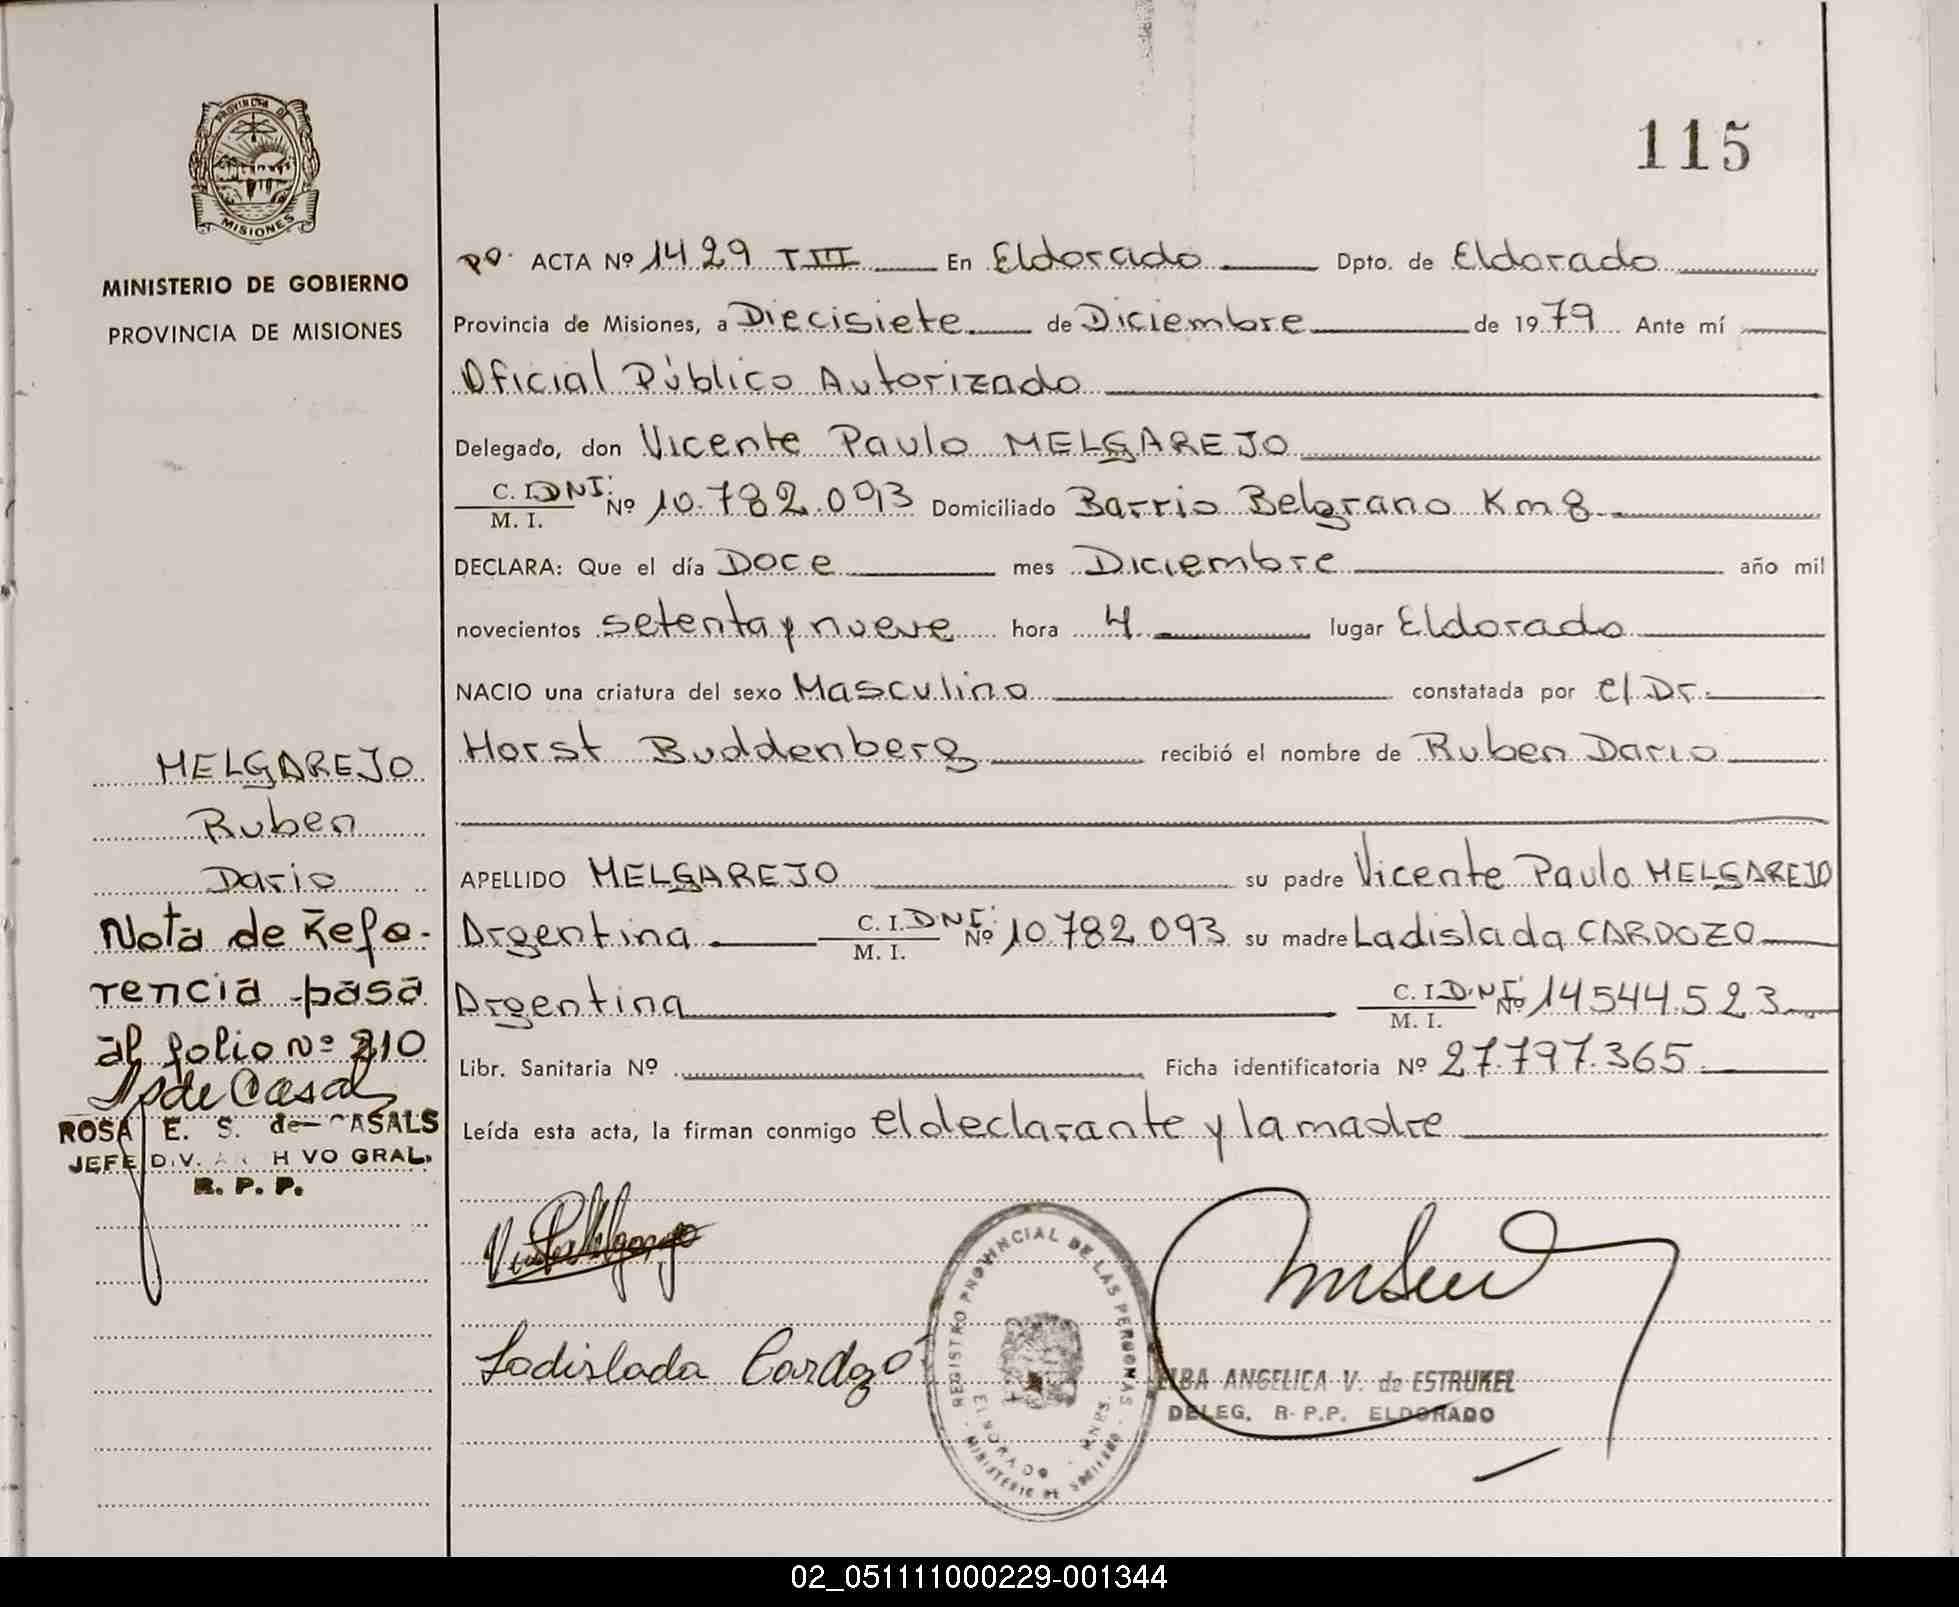 PROVINCIA DE
MISIONES
MINISTERIO DE GOBIERNO
PROVINCIA DE MISIONES
115
Pº. ACTA Nº 1429 TIII En Eldorado Dpto. de Eldorado
Provincia de Misiones, a Diecisiete de Diciembre de 1979 Ante mí
Oficial Público Autorizado
Delegado, don Vicente Paulo MELGAREJO
C. I. DNI. Nº 10.782.093 Domiciliado Barrio Belgrano Km 8
M. I.
DECLARA: Que el día Doce mes Diciembre año mil
novecientos setenta y nueve hora 4 lugar Eldorado
NACIO una criatura del sexo Masculino constatada por el Dr.
Horst Buddenberg recibió el nombre de Ruben Dario
APELLIDO MELGAREJO su padre Vicente Paulo MELGAREJO
Argentina C. I. DNI. Nº 10.782.093 su madre Ladislada CARDOZO
M. I.
Argentina C. I. D.N.I. Nº 14544.523
M. I.
Libr. Sanitaria Nº Ficha identificatoria Nº 27.797.365
Leída esta acta, la firman conmigo el declarante y la madre
MELGAREJO
Ruben
Dario
Nota de Refe-
rencia pasa
al folio nº 210
ROSA E. S. de CASALS
JEFE DIV. ARCHIVO GRAL.
R. P. P.
Ladislada Cardozo
REGISTRO PROVINCIAL DE LAS PERSONAS
ELDORADO - MNES.
MINISTERIO DE GOBIERNO
ELBA ANGELICA V. de ESTRUKEL
DELEG. R. P.P. ELDORADO
02_051111000229-001344